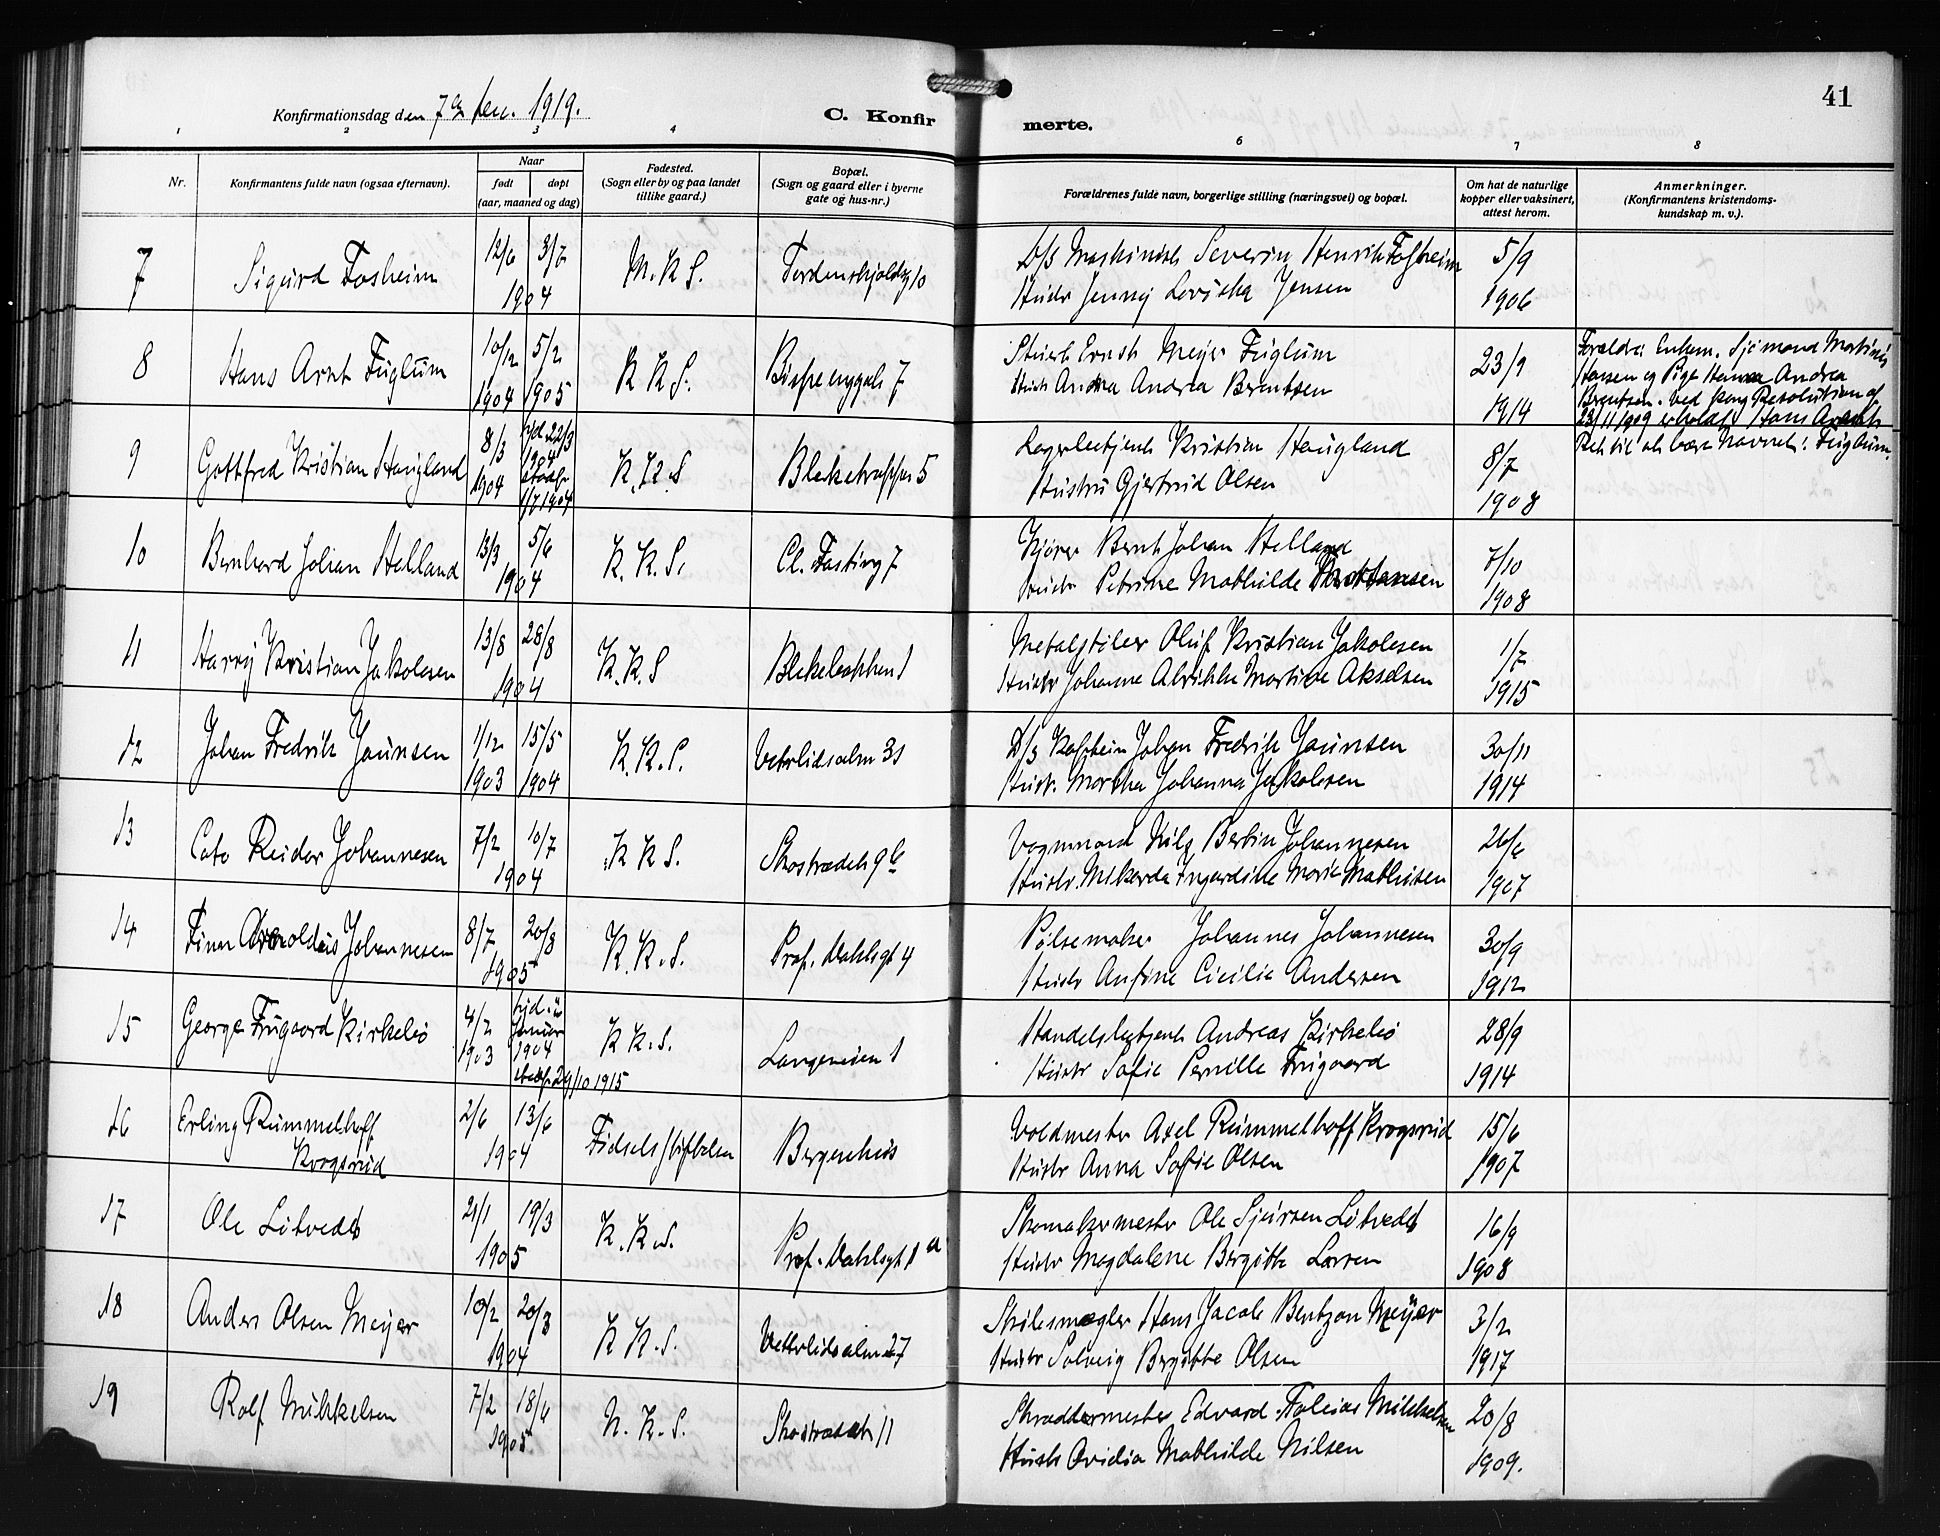 Konfirmationsdag den 7de Dec. 1919.
C. Konfirmerte.
41
1 2 3 4 6 7 8
Nr.
Konfirmantens fulde navn (ogsaa efternavn).
Naar
født døpt
(aar, maaned og dag)
Fødested.
(Sogn eller by og paa landet
tillike gaard.)
Bopæl.
(Sogn og gaard eller i byerne
gate og hus-nr.)
Forældrenes fulde navn, borgerlige stilling (næringsvei) og bopæl.
Om hat de naturlige
kopper eller vaksinert,
attest herom.
Anmerkninger.
(Konfirmantens kristendoms-
kundskap m. v.).
7 Sigurd Fosheim 12/6 3/7 1904 M. K S. Tordenskjoldsg 10
D/s Maskinist Severin Henrik Fosheim 5/9
Hustr Jenny Loviska Jensen 1906
8 Hans Arnt Fuglum 10/12 1904 5/2 1905 K K S. Bispeenggate 7
Stuert Ernst Meyer Fuglum 23/9
Hustr Anna Andrea Berentsen 1914
Forældre: Enkem. Sjømand Martinius
Hansen og Pige Hanna Andrea
Berentsen. Ved kong Resolution af
23/11 1909 erholdt Hans Arnt
Ret til at bære Navnet: Fuglum.
9 Gottfred Kristian Haugland 8/3 1904 hjd. 22/3 1904 stadf. 1/7 1904 K. K. S Bleketrappen 5
Lagerbetjent Kristian Haugland 8/7
Hustru Gjertrud Olsen 1908
10 Bernhard Johan Helland 13/3 5/6 1904 K. K. S. Cl. Fasting 7
Kjører Bernt Johan Helland 7/10
Hustr Petrine Mathilde Kristiansen 1908
11 Harry Kristian Jakobsen 13/8 28/8 1904 K. K. S Blekebakken 1
Metalstiler Oluf Kristian Jakobsen 1/7
Hustr Johanne Alrikke Martine Akselsen 1915
12 Johan Fredrik Jaunsen 1/12 1903 15/5 1904 K. K. S. Vetrlidsalm 31
D/s Kaptein Johan Fredrik Jaunsen 30/11
Hustr. Martha Johanna Jakobsen 1914
13 Cato Reidar Johannesen 7/2 10/7 1904 K K S. Skostrædet 9b
Vognmand Nils Bertin Johannesen 26/6
Hustr. Mikarda Ingardine Marie Mathisen 1907
14 Finn Arnoldus Johannesen 8/7 20/8 1905 K. K. S. Prof. Dahlsgt 4
Pølsemaker Johannes Johannesen 30/9
Hustr Antine Cicilie Andersen 1912
15 George Frugaard Kirkebø 4/2 1903 hjd. i Januar 1904 stadf. 29/10 1915 K K. S. Langeveien 1
Handelsbetjent Andreas Kirkebø 28/9
Hustr Sofie Pernille Frugaard 1914
16 Erling Rummelhoff
Krogsrud 2/6 13/6 1904 Fødselsstiftelsen Bergenhus
Voldmester Axel Rummelhoff Krogsrud 15/6
Hustr Anna Sofie Olsen 1907
17 Ole Litvedt 21/1 19/3 1905 K. K S. Prof. Dahlsgt 1 a
Skomakermester Ole Sjursen Litvedt 16/9
Hustr Magdalene Bergitte Larsen 1908
18 Anders Olsen Meyer 10/2 20/3 1904 K K. S. Vetrlidsalm 27
Skibsmægler Hans Jacob Bentzon Meyer 3/2
Hustr Solveig Bergitte Olsen 1917
19 Rolf Mikkelsen 7/2 18/6 1905 N. K. S. Skostrædet 11
Skræddermester Edvard Tobias Mikkelsen 20/8
Hustr Ovidia Mathilde Nilsen 1909.